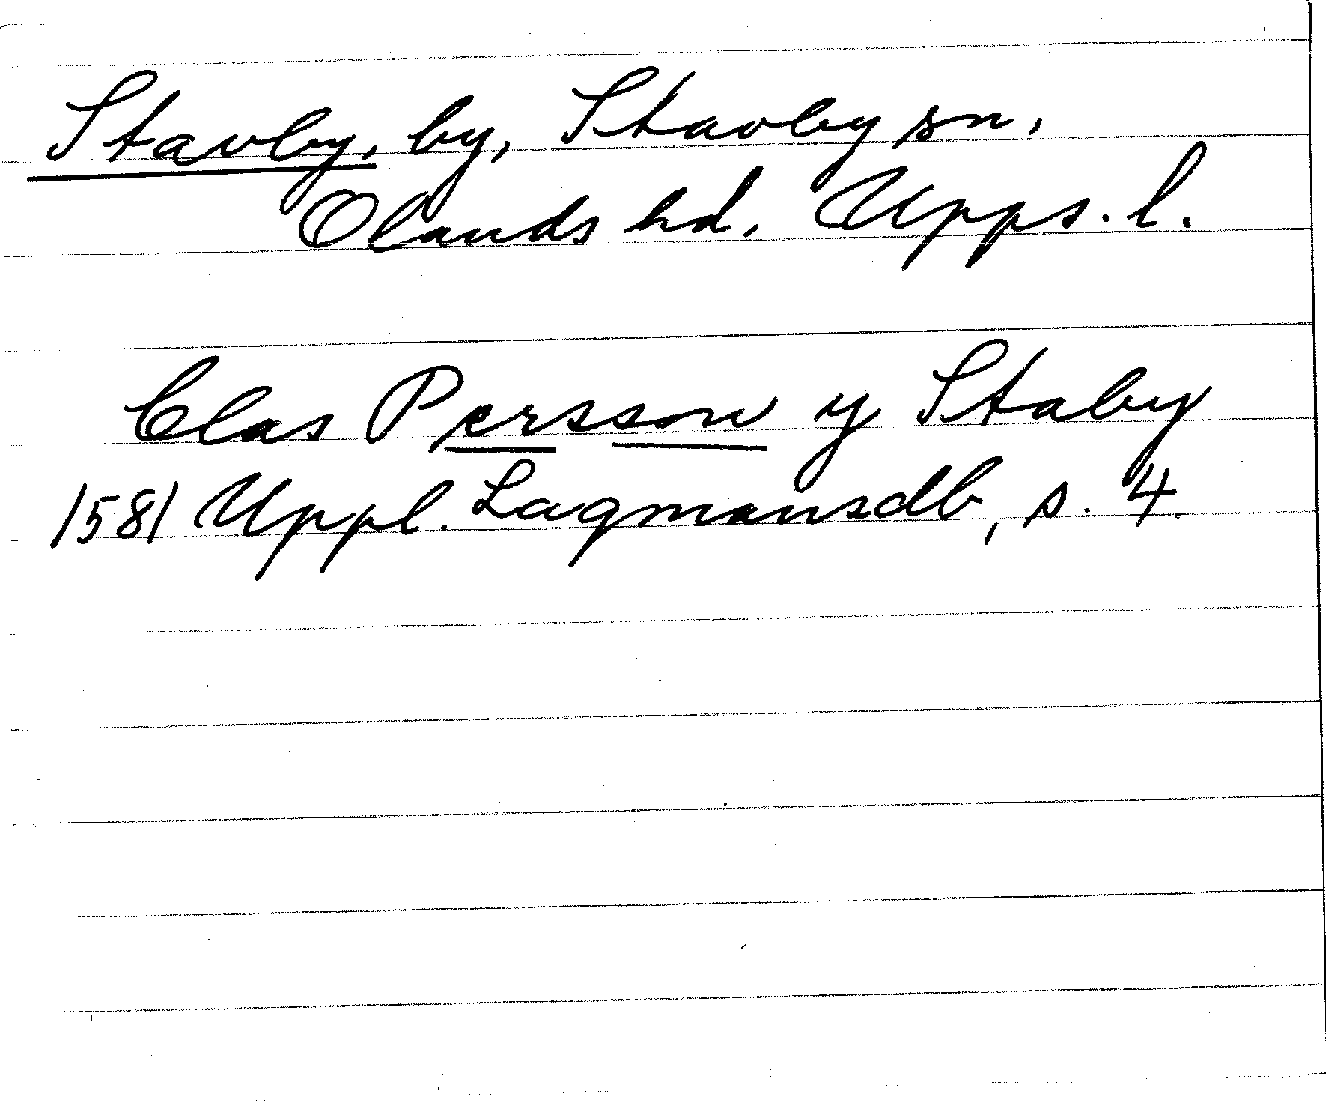 Stavby, by, Stavby sn,
Olands hd, Upps. l.
Clas Persson y Staby
1581 Uppl. Lagmansdb, s. 4.